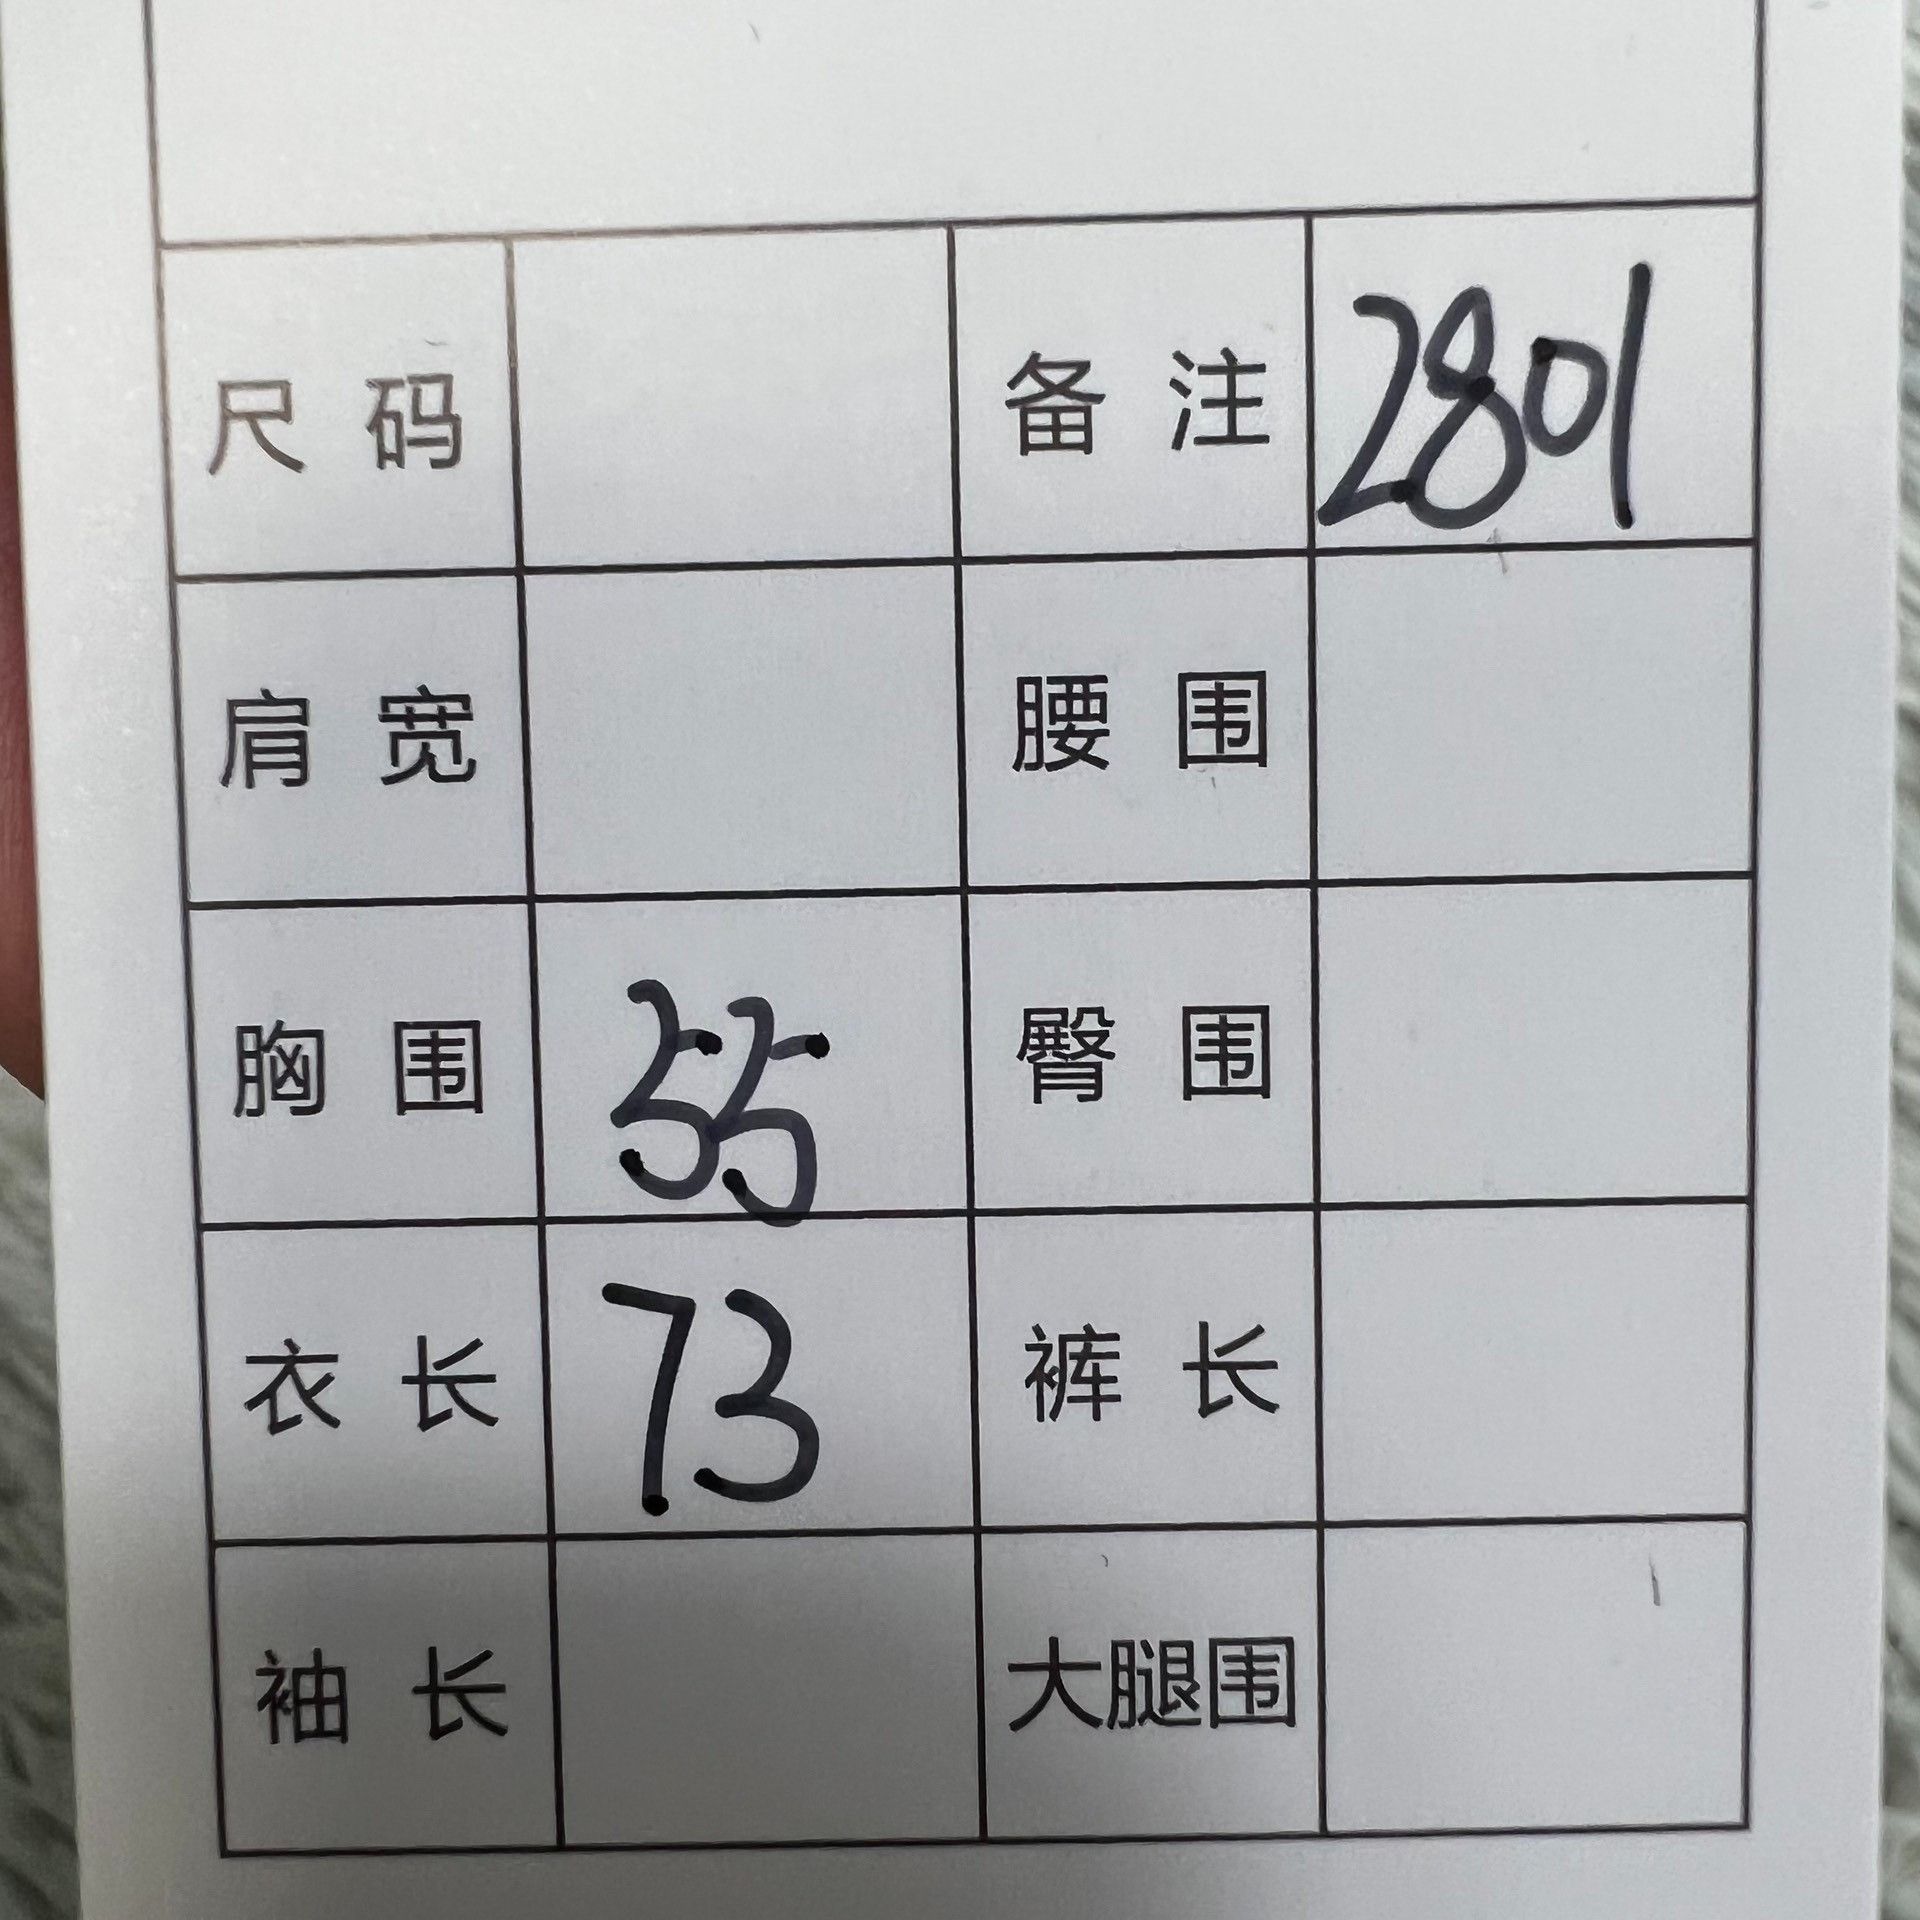 尺码 备注 2801
肩宽 腰围
胸围 55 臀围
衣长 73 裤长
袖长 大腿围